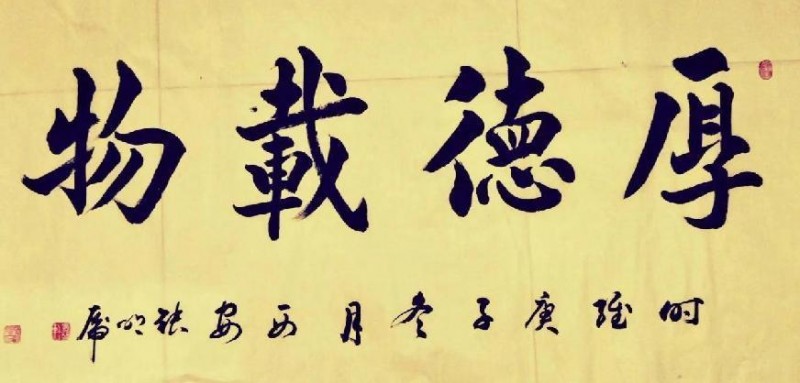 厚德載物
时維庚子冬月西安张明虎